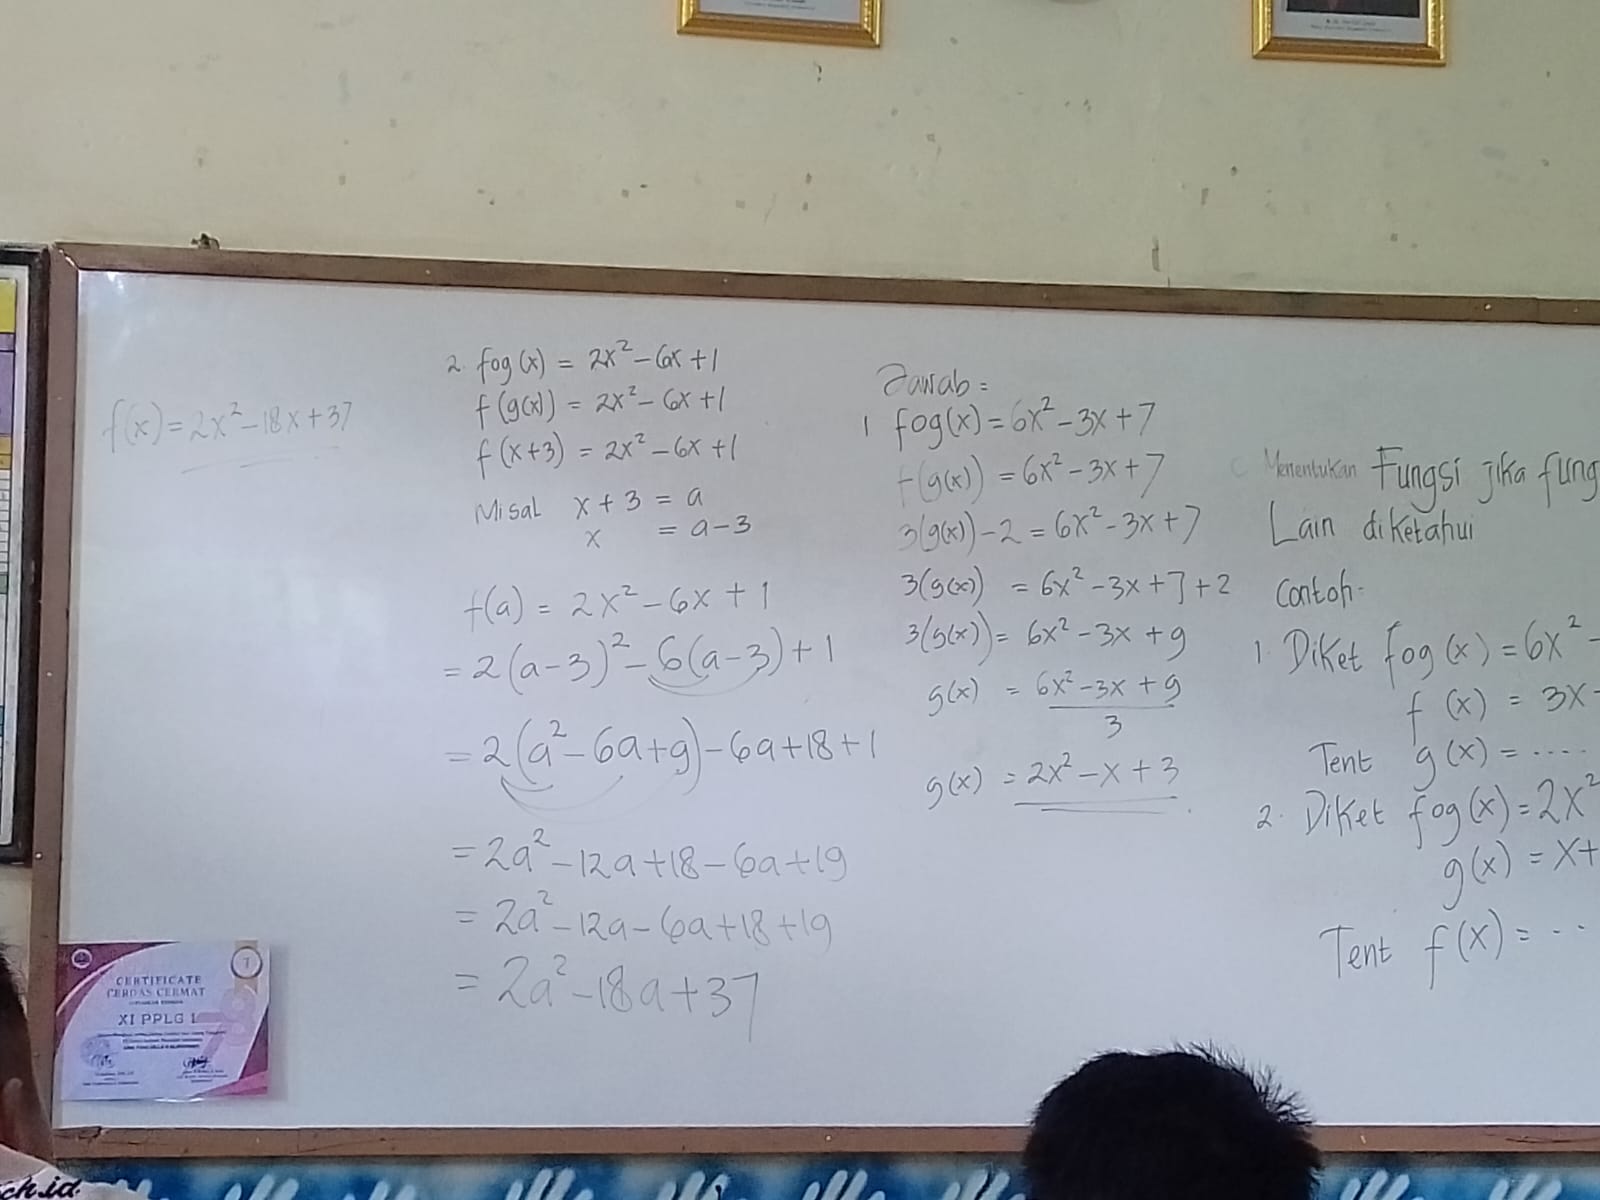 f(x) = 2x² - 18x + 37
2. fog(x) = 2x² - 6x + 1
f(g(x)) = 2x² - 6x + 1
f(x+3) = 2x² - 6x + 1
Misal x + 3 = a
x = a - 3
f(a) = 2x² - 6x + 1
= 2(a-3)² - 6(a-3) + 1
= 2(a² - 6a + 9) - 6a + 18 + 1
= 2a² - 12a + 18 - 6a + 19
= 2a² - 12a - 6a + 18 + 19
= 2a² - 18a + 37
Jawab =
1 fog(x) = 6x² - 3x + 7
f(g(x)) = 6x² - 3x + 7
3(g(x)) - 2 = 6x² - 3x + 7
3(g(x)) = 6x² - 3x + 7 + 2
3(g(x)) = 6x² - 3x + 9
g(x) = 6x² - 3x + 9
3
g(x) = 2x² - x + 3
C Menentukan Fungsi jika fung
Lain diketahui
Contoh:
1. Diket fog(x) = 6x² -
f (x) = 3x -
Tent g(x) = ....
2. Diket fog(x) = 2x²
g(x) = x +
Tent f(x) = ...
CERTIFICATE
CERDAS CERMAT
XI PPLG 1
ch.id